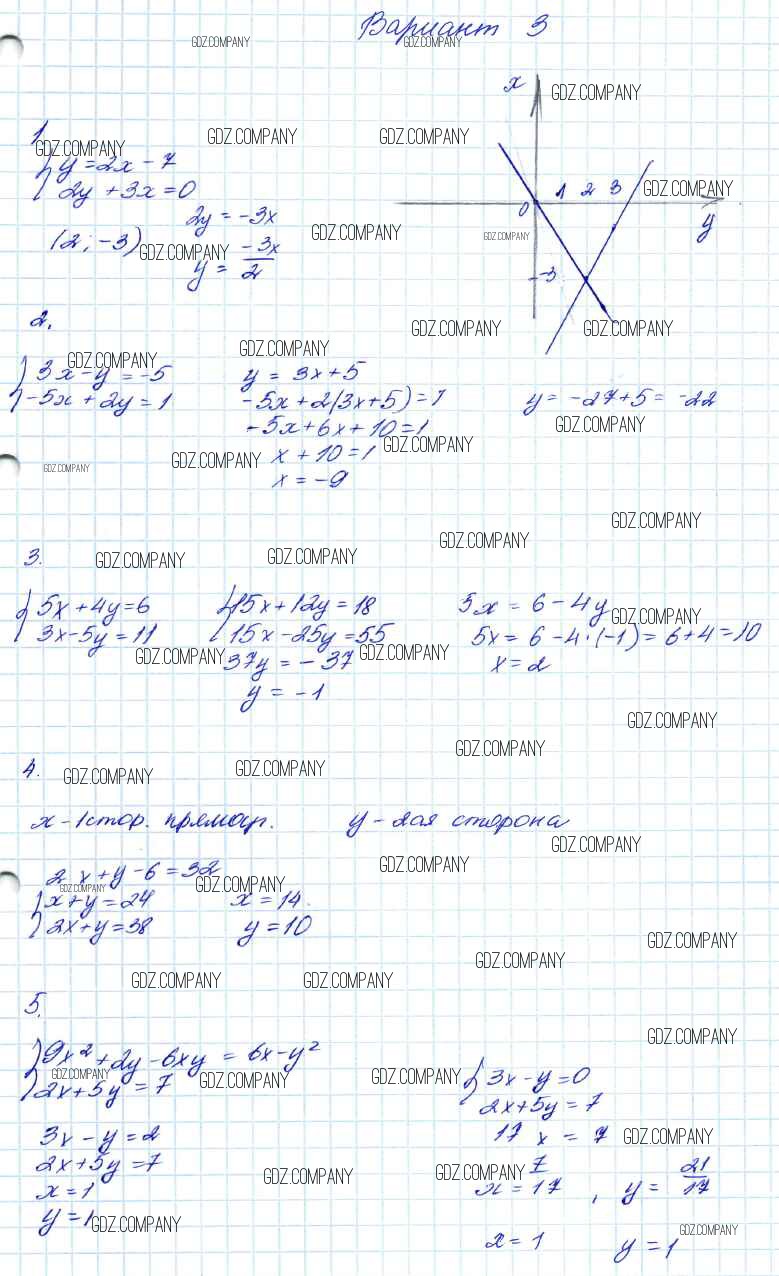 Вариант 3
GDZ.COMPANY GDZ.COMPANY
x GDZ.COMPANY
1. GDZ.COMPANY GDZ.COMPANY GDZ.COMPANY
{ y = 2x - 7
2y + 3x = 0
0 1 2 3 GDZ.COMPANY
y
2y = -3x GDZ.COMPANY GDZ.COMPANY
(2; -3) GDZ.COMPANY y = -3x/2
-3
2. GDZ.COMPANY GDZ.COMPANY
GDZ.COMPANY GDZ.COMPANY
{ 3x - y = -5 y = 3x + 5
-5x + 2y = 1 -5x + 2(3x + 5) = 1 y = -27 + 5 = -22
-5x + 6x + 10 = 1 GDZ.COMPANY
GDZ.COMPANY GDZ.COMPANY x + 10 = 1 GDZ.COMPANY
x = -9
GDZ.COMPANY
GDZ.COMPANY
3. GDZ.COMPANY GDZ.COMPANY
{ 5x + 4y = 6 { 15x + 12y = 18 5x = 6 - 4y GDZ.COMPANY
3x - 5y = 11 15x - 25y = 55 5x = 6 - 4·(-1) = 6 + 4 = 10
GDZ.COMPANY 37y = -37 GDZ.COMPANY x = 2
y = -1
GDZ.COMPANY
GDZ.COMPANY
4. GDZ.COMPANY GDZ.COMPANY
x - 1 стор. прямоуг. y - 2ая сторона
GDZ.COMPANY
GDZ.COMPANY
2x + y - 6 = 32
GDZ.COMPANY GDZ.COMPANY
{ x + y = 24 x = 14.
2x + y = 38 y = 10
GDZ.COMPANY
GDZ.COMPANY
GDZ.COMPANY GDZ.COMPANY
5.
GDZ.COMPANY
{ 9x² + 2y - 6xy = 6x - y²
GDZ.COMPANY GDZ.COMPANY GDZ.COMPANY { 3x - y = 0
2x + 5y = 7 2x + 5y = 7
3x - y = 2 17x = 7 GDZ.COMPANY
2x + 5y = 7 GDZ.COMPANY GDZ.COMPANY
x = 1 x = 7/17, y = 21/17
y = 1 GDZ.COMPANY GDZ.COMPANY
x = 1 y = 1